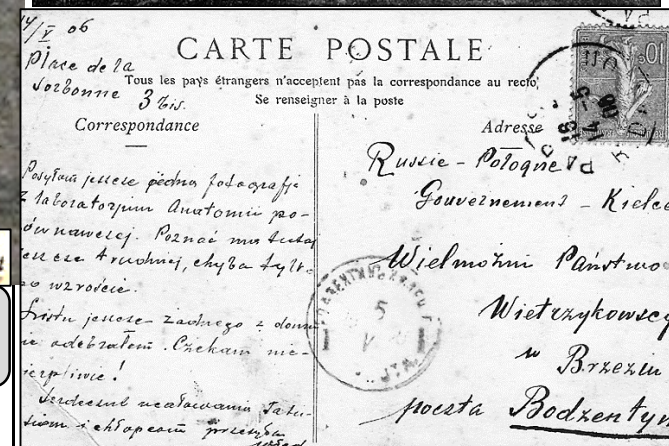 14/V 06
Place de la
Sorbonne 3 bis.
CARTE POSTALE
Tous les pays étrangers n'acceptent pas la correspondance au recto
Se renseigner à la poste
Correspondance
Posyłam jeszcze jedną fotografję
z laboratorjum Anatomii po-
równawczej. Poznać mnie tutaj
jeszcze trudniej, chyba tylko
po wzroście.
Listu jeszcze żadnego z domu
nie odebrałem. Czekam nie-
cierpliwie!
Serdeczne ucałowania Tatu-
siom i chłopcom przesyła
Adresse
Russie - Pologne
Gouvernement - Kielce
Wielmożni Państwo
Wietrzykowscy
w Brzeziu
poczta Bodzentyn
10
PARIS
5